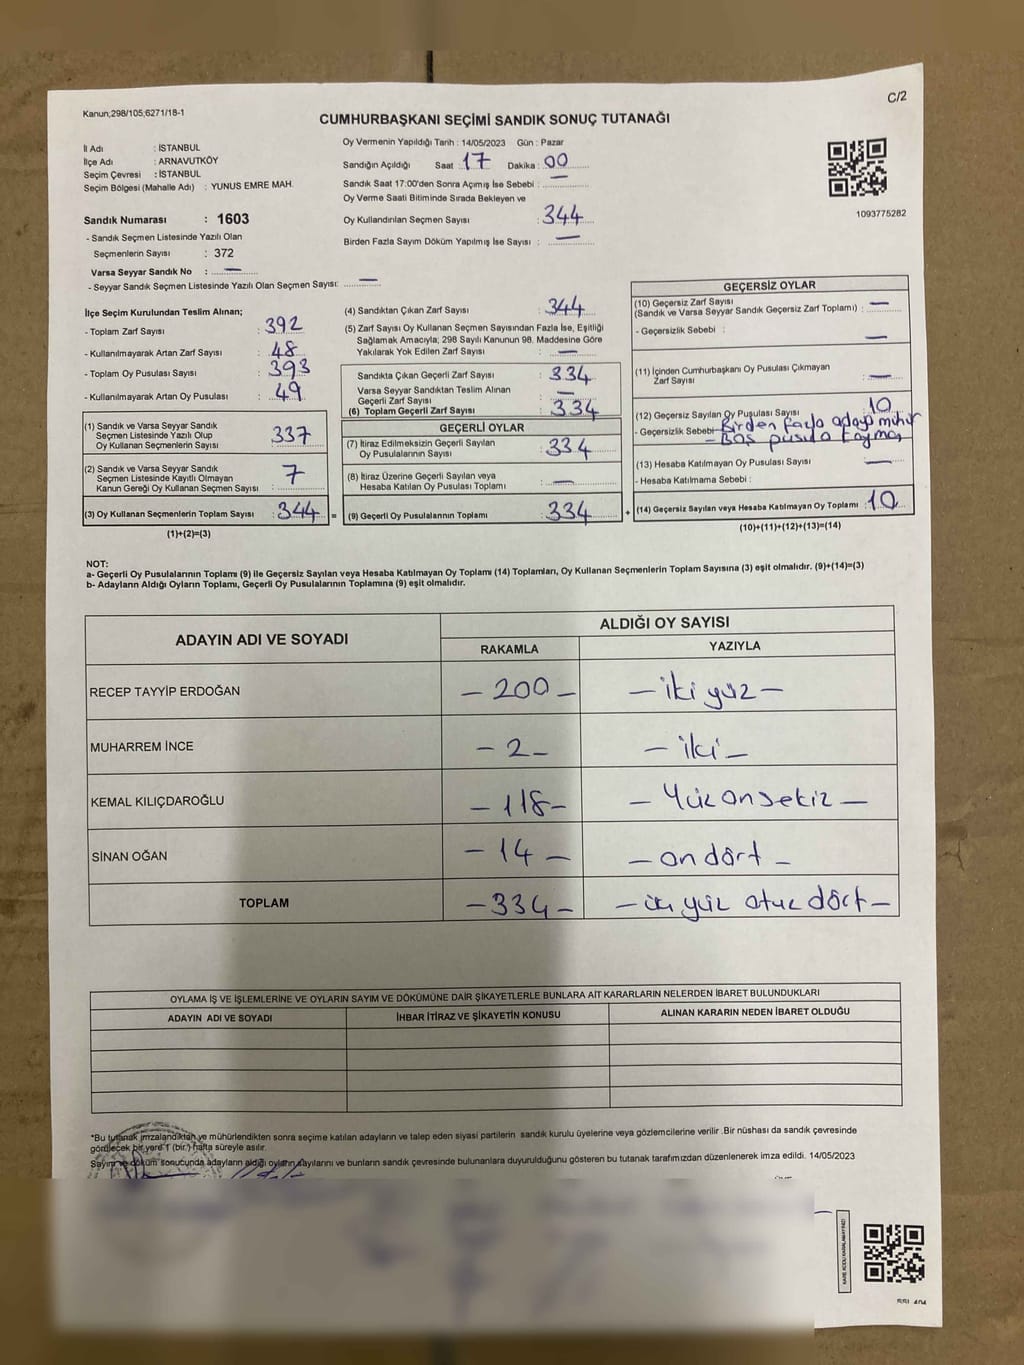 C/2
Kanun;298/105;6271/18-1
CUMHURBAŞKANI SEÇİMİ SANDIK SONUÇ TUTANAĞI
İl Adı : İSTANBUL
İlçe Adı : ARNAVUTKÖY
Seçim Çevresi : İSTANBUL
Seçim Bölgesi (Mahalle Adı) : YUNUS EMRE MAH.
Sandık Numarası : 1603
- Sandık Seçmen Listesinde Yazılı Olan
Seçmenlerin Sayısı : 372
Varsa Seyyar Sandık No : —
- Seyyar Sandık Seçmen Listesinde Yazılı Olan Seçmen Sayısı: —
Oy Vermenin Yapıldığı Tarih : 14/05/2023 Gün : Pazar
Sandığın Açıldığı Saat : 17 Dakika : 00
Sandık Saat 17:00'den Sonra Açımış İse Sebebi : —
Oy Verme Saati Bitiminde Sırada Bekleyen ve
Oy Kullandırılan Seçmen Sayısı : 344
Birden Fazla Sayım Döküm Yapılmış İse Sayısı : —
1093775282
İlçe Seçim Kurulundan Teslim Alınan;
- Toplam Zarf Sayısı : 392
- Kullanılmayarak Artan Zarf Sayısı : 48
- Toplam Oy Pusulası Sayısı : 393
- Kullanılmayarak Artan Oy Pusulası : 49
(1) Sandık ve Varsa Seyyar Sandık
Seçmen Listesinde Yazılı Olup
Oy Kullanan Seçmenlerin Sayısı : 337
(2) Sandık ve Varsa Seyyar Sandık
Seçmen Listesinde Kayıtlı Olmayan
Kanun Gereği Oy Kullanan Seçmen Sayısı : 7
(3) Oy Kullanan Seçmenlerin Toplam Sayısı : 344
(1)+(2)=(3)
(4) Sandıktan Çıkan Zarf Sayısı : 344
(5) Zarf Sayısı Oy Kullanan Seçmen Sayısından Fazla İse, Eşitliği
Sağlamak Amacıyla; 298 Sayılı Kanunun 98. Maddesine Göre
Yakılarak Yok Edilen Zarf Sayısı : —
Sandıkta Çıkan Geçerli Zarf Sayısı : 334
Varsa Seyyar Sandıktan Teslim Alınan
Geçerli Zarf Sayısı : —
(6) Toplam Geçerli Zarf Sayısı : 334
GEÇERLİ OYLAR
(7) İtiraz Edilmeksizin Geçerli Sayılan
Oy Pusulalarının Sayısı : 334
(8) İtiraz Üzerine Geçerli Sayılan veya
Hesaba Katılan Oy Pusulası Toplamı : —
= (9) Geçerli Oy Pusulalarının Toplamı : 334
GEÇERSİZ OYLAR
(10) Geçersiz Zarf Sayısı
(Sandık ve Varsa Seyyar Sandık Geçersiz Zarf Toplamı) : —
- Geçersizlik Sebebi : —
(11) İçinden Cumhurbaşkanı Oy Pusulası Çıkmayan
Zarf Sayısı : —
(12) Geçersiz Sayılan Oy Pusulası Sayısı : 10
- Geçersizlik Sebebi : Birden fazla adaya mühür
- Boş pusula
(13) Hesaba Katılmayan Oy Pusulası Sayısı : —
- Hesaba Katılmama Sebebi :
+ (14) Geçersiz Sayılan veya Hesaba Katılmayan Oy Toplamı : 10
(10)+(11)+(12)+(13)=(14)
NOT:
a- Geçerli Oy Pusulalarının Toplamı (9) ile Geçersiz Sayılan veya Hesaba Katılmayan Oy Toplamı (14) Toplamları, Oy Kullanan Seçmenlerin Toplam Sayısına (3) eşit olmalıdır. (9)+(14)=(3)
b- Adayların Aldığı Oyların Toplamı, Geçerli Oy Pusulalarının Toplamına (9) eşit olmalıdır.
ADAYIN ADI VE SOYADI ALDIĞI OY SAYISI
RAKAMLA YAZIYLA
RECEP TAYYİP ERDOĞAN - 200 - - iki yüz -
MUHARREM İNCE - 2 - - iki -
KEMAL KILIÇDAROĞLU - 118 - - Yüz on sekiz -
SİNAN OĞAN - 14 - - on dört -
TOPLAM - 334 - - yüz otuz dört -
OYLAMA İŞ VE İŞLEMLERİNE VE OYLARIN SAYIM VE DÖKÜMÜNE DAİR ŞİKAYETLERLE BUNLARA AİT KARARLARIN NELERDEN İBARET BULUNDUKLARI
ADAYIN ADI VE SOYADI İHBAR İTİRAZ VE ŞİKAYETİN KONUSU ALINAN KARARIN NEDEN İBARET OLDUĞU
*Bu tutanak imzalandıktan ve mühürlendikten sonra seçime katılan adayların ve talep eden siyasi partilerin sandık kurulu üyelerine veya gözlemcilerine verilir .Bir nüshası da sandık çevresinde
görülecek bir yere 1 (bir) hafta süreyle asılır.
Sayım ve döküm sonucunda adayların aldığı oyların sayılarını ve bunların sandık çevresinde bulunanlara duyurulduğunu gösteren bu tutanak tarafımızdan düzenlenerek imza edildi. 14/05/2023